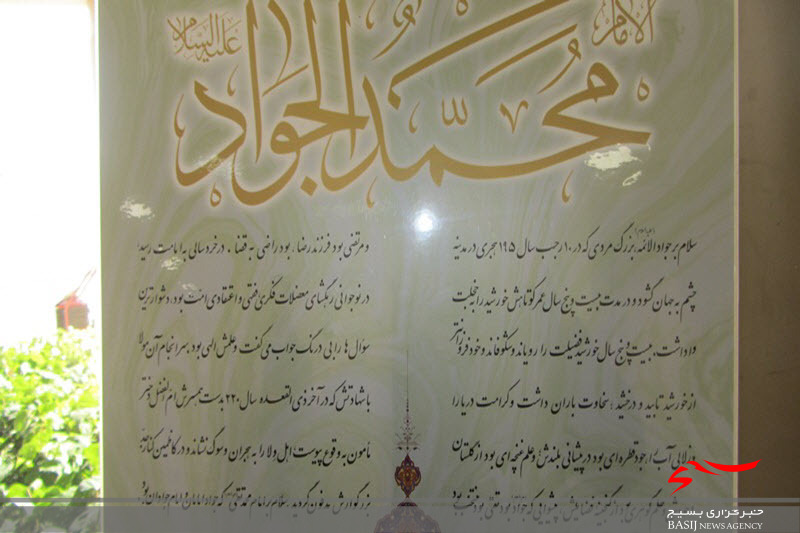 الإمام
محمد الجواد
علیه السلام
سلام بر جواد الائمه، بزرگ مردی که در ۱۰ رجب سال ۱۹۵ هجری در مدینه
چشم به جهان گشود و در مدت بیست و پنج سال عمر کوتاهش خورشید را به خجلت
واداشت، بیست و پنج سال خورشید فضیلت را رویاند و شکوفاند و خود فروزانتر
از خورشید تابید و درخشید؛ سخاوت باران داشت و کرامت دریا را
و زلالی آب را. جود قطره‌ای بود در پیشانی بلندش و علم غنچه‌ای بود از گلستان
گوهری از گنجینه فضایلش. پیشوایی که جواد بود تقی بود
و مرتضی بود فرزند رضا، بود راضی به قضا. در خردسالی به امامت رسید؛
در نوجوانی رهگشای معضلات فکری فقهی و اعتقادی امت بود. دشوارترین
سؤال ها را بی درنگ جواب می گفت و علمش الهی بود. سرانجام آن مولا
با شهادتش که در آخر ذی القعده سال ۲۲۰ بدست همسرش ام الفضل دختر
مأمون به وقوع پیوست؛ اهل ولا را به هجران و سوگ نشاند و در کاظمین کنار جد
بزرگوارش مدفون گردید. سلام بر امام محمد تقی که جواد امامان و امام جوادان بود
بسیج
خبرگزاری بسیج
BASIJ NEWS AGENCY